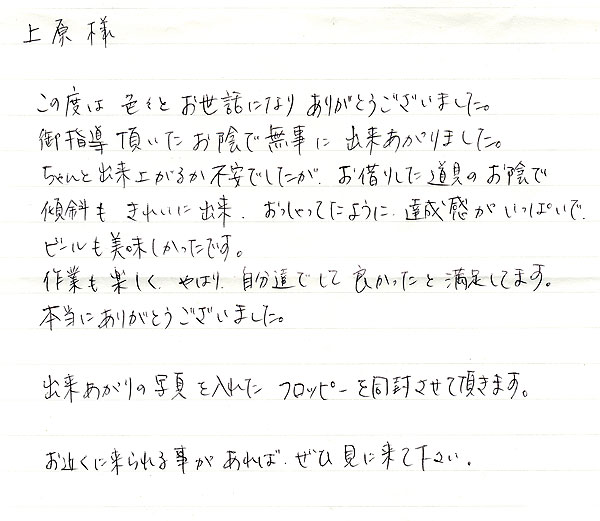 上原様
この度は色々とお世話になりありがとうございました。
御指導頂いたお陰で無事に出来あがりました。
ちゃんと出来上がるか不安でしたが、お借りした道具のお陰で
傾斜もきれいに出来、おっしゃってたように、達成感がいっぱいで、
ビールも美味しかったです。
作業も楽しく、やはり、自分達でして良かったと満足してます。
本当にありがとうございました。
出来あがりの写真を入れたフロッピーを同封させて頂きます。
お近くに来られる事があれば、ぜひ見に来て下さい。